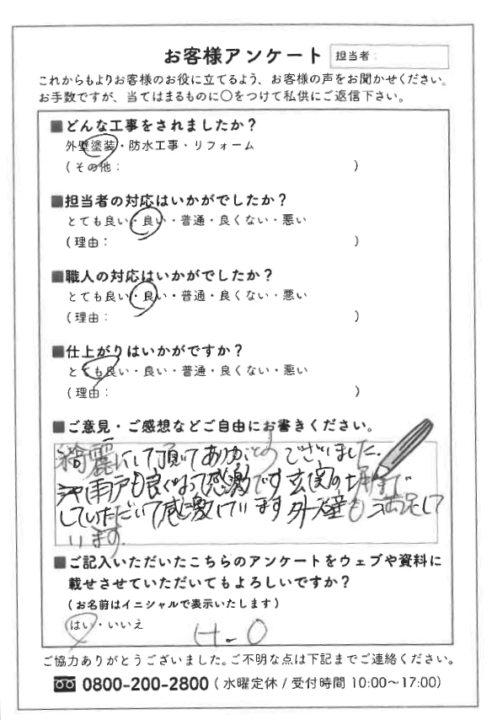 お客様アンケート 担当者：
これからもよりお客様のお役に立てるよう、お客様の声をお聞かせください。
お手数ですが、当てはまるものに〇をつけて私供にご返信下さい。
■どんな工事をされましたか？
外壁塗装・防水工事・リフォーム
（その他： ）
■担当者の対応はいかがでしたか？
とても良い・良い・普通・良くない・悪い
（理由： ）
■職人の対応はいかがでしたか？
とても良い・良い・普通・良くない・悪い
（理由： ）
■仕上がりはいかがですか？
とても良い・良い・普通・良くない・悪い
（理由： ）
■ご意見・ご感想などご自由にお書きください。
綺麗にして頂いてありがとうございました。
雨戸も良くなって感激です 玄関の土間まで
していただいて感激しています 外壁も満足して
います。
■ご記入いただいたこちらのアンケートをウェブや資料に
載せさせていただいてもよろしいですか？
（お名前はイニシャルで表示いたします）
はい・いいえ H.O
ご協力ありがとうございました。ご不明な点は下記までご連絡ください。
0800-200-2800（水曜定休 / 受付時間 10:00〜17:00）